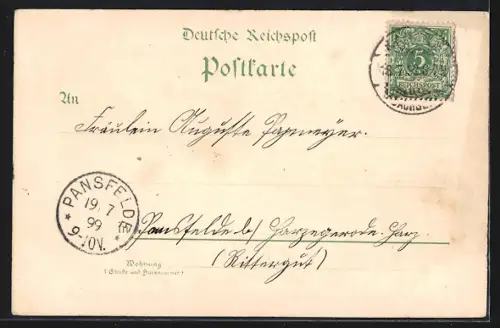 Deutsche Reichspost
Postkarte
5
An
Fräulein Auguste Papmeyer.
PANSFELDE
19. 7
99
9-10V.
Pansfelde b/ Harzgerode. Harz.
(Rittergut)
Wohnung
(Straße und Hausnummer)